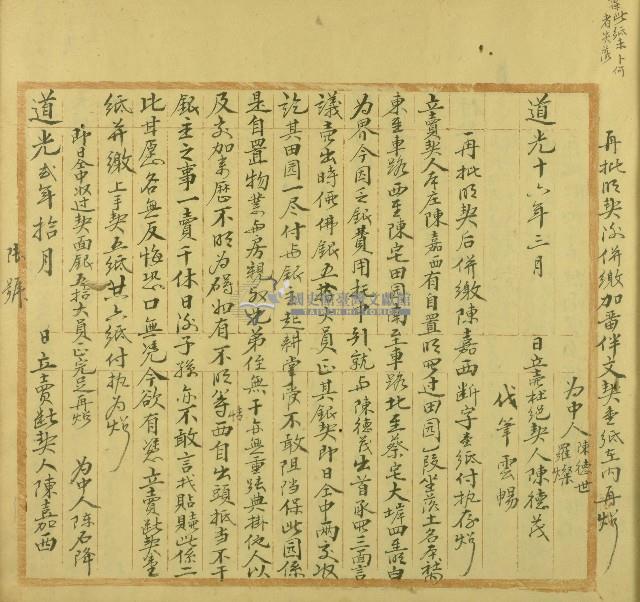 保此紙未卜何
者失落
再批明契內併繳加番伴文契壹紙在內再炤
為中人陳德世
羅燦
代筆雲暢
道光十六年三月 日立賣杜絕契人陳德茂
再批明契后併繳陳嘉西斷字壹紙付执存炤
立賣契人本庄陳嘉西有自置明買过田园一段坐落土名本社
東至車路西至陳宅田园南至車路北至蔡宅大堓四至明白
為界今因乏銀費用托中引就与陳德茂出首承買三面言
議賣出時價佛銀五拾大員正其銀契即日仝中兩交收
訖其田园一尽付与銀主起耕掌管不敢阻挡保此园係
是自置物業与房親叔兄弟侄無干亦無重張典掛他人以
及交加來歷不明為碍如有不明等情西自出頭抵当不干
銀主之事一賣千休日后子孫亦不敢言找貼贖此係二
比甘愿各無反悔恐口無凭今欲有凴立賣斷契壹
紙并繳上手契五紙共六紙付执為炤
即日仝中收过契面銀五拾大員正完足再炤 為中人陈石降
道光弍年拾月 日立賣斷契人陳嘉西
國史館臺灣文獻館
TAIWAN HISTORICA